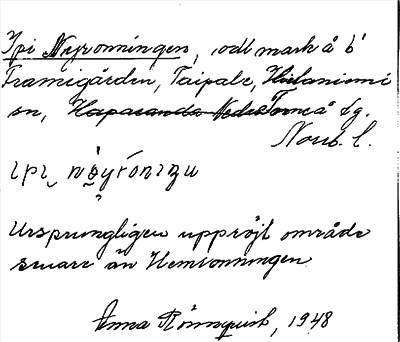 Ipi Nyronningen, odl mark å b'
Framigården, Taipale, Hietaniemi
sn, Haparanda Nedertorneå tg.
Norrb. l.
Ursprungligen uppröjt område
senare än Hemronningen
Anna Rönnquist, 1948